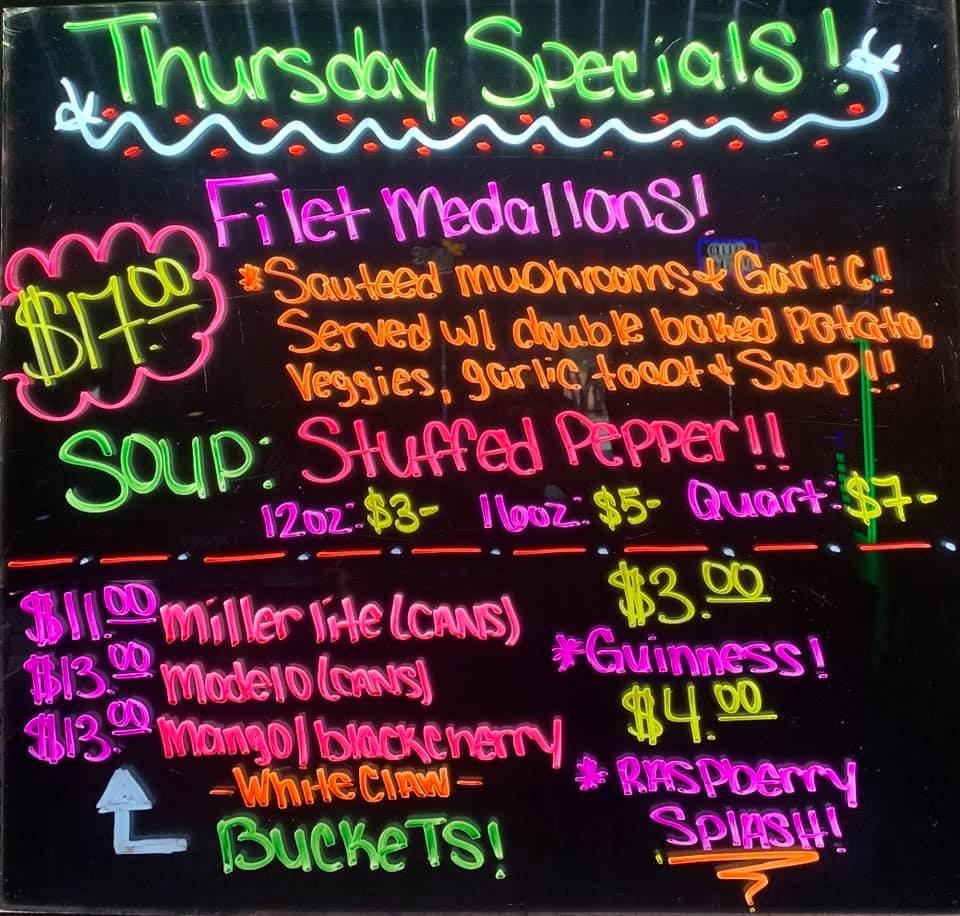 Thursday Specials!
Filet Medallons!
$17.00
*Sauteed mushrooms & Garlic!
Served w/ double baked Potato,
Veggies, garlic toast & Soup!!
Soup: Stuffed Pepper!!
12oz: $3- 16oz: $5- Quart: $7-
$11.00 Miller lite (CANS)
$13.00 Modelo (CANS)
$13.00 Mango/blackcherry
-White Claw-
BucKeTS!
$3.00
*Guinness!
$4.00
*RASPberry
SPlASH!